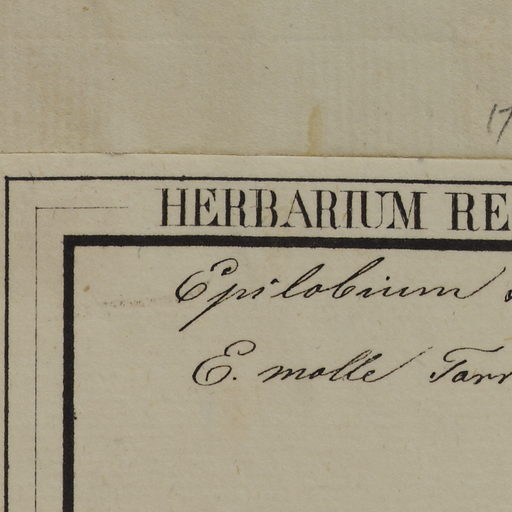 17
HERBARIUM RE
Epilobium
E. molle Torr